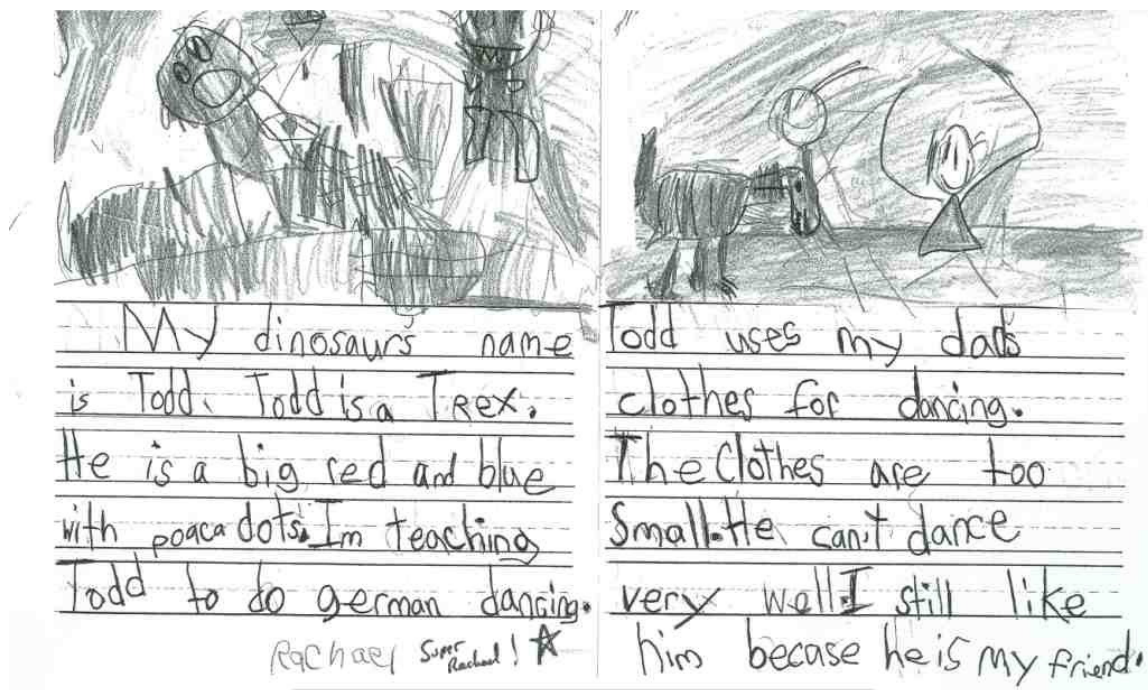 My dinosaurs name
is Todd. Todd is a T Rex.
He is a big red and blue
with poaca dots. Im teaching
Todd to do german dancing.
Rachael Super Rachael!
Todd uses my dads
clothes for dancing.
The Clothes are too
Small. He can't dance
very well I still like
him becase he is my friend.